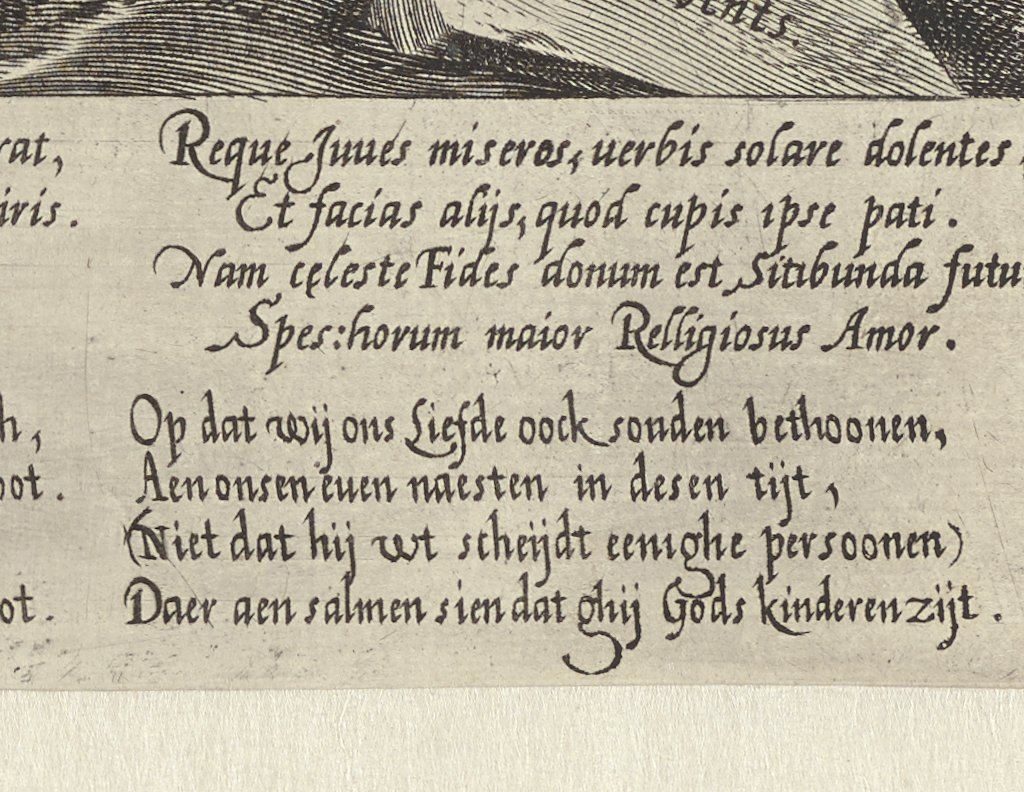 rat, Reque Juues miseros, uerbis solare dolentes,
iris. Et facias alijs, quod cupis ipse pati.
Nam cęleste Fides donum est, Sitibunda futu
Spes: horum maior Relligiosus Amor.
h, Op dat wij ons Liefde oock souden bethoonen,
oot. Aen onsen euen naesten in desen tijt,
(Niet dat hij wt scheijdt eenighe persoonen)
ot. Daer aen salmen sien dat ghij Gods kinderen zijt.